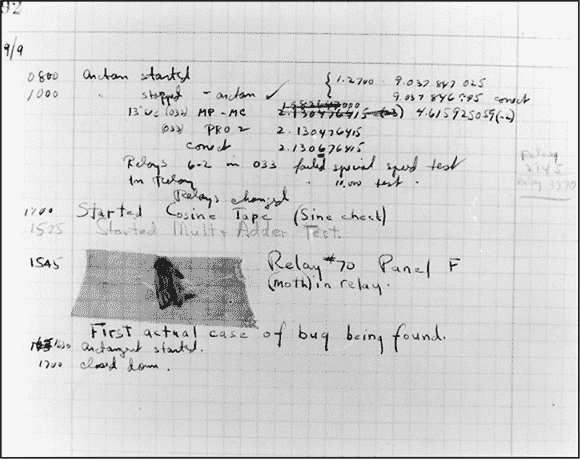 92
9/9
0800 Antan started
1000 " stopped - antan ✓ { 1.2700 9.037 847 025
9.037 846 995 conect
13"uc (032) MP - MC 2.130476415 (-3) 4.615925059(-2)
(033) PRO 2 2.130476415
conect 2.130676415
Relays 6-2 in 033 failed special speed test
In Relay " 10,000 test .
Relays changed
Relay
2145
Relay 3370
1100 Started Cosine Tape (Sine check)
1525 Started Mult+Adder Test.
1545 Relay #70 Panel F
(moth) in relay.
First actual case of bug being found.
1630 antangent started.
1700 closed down.